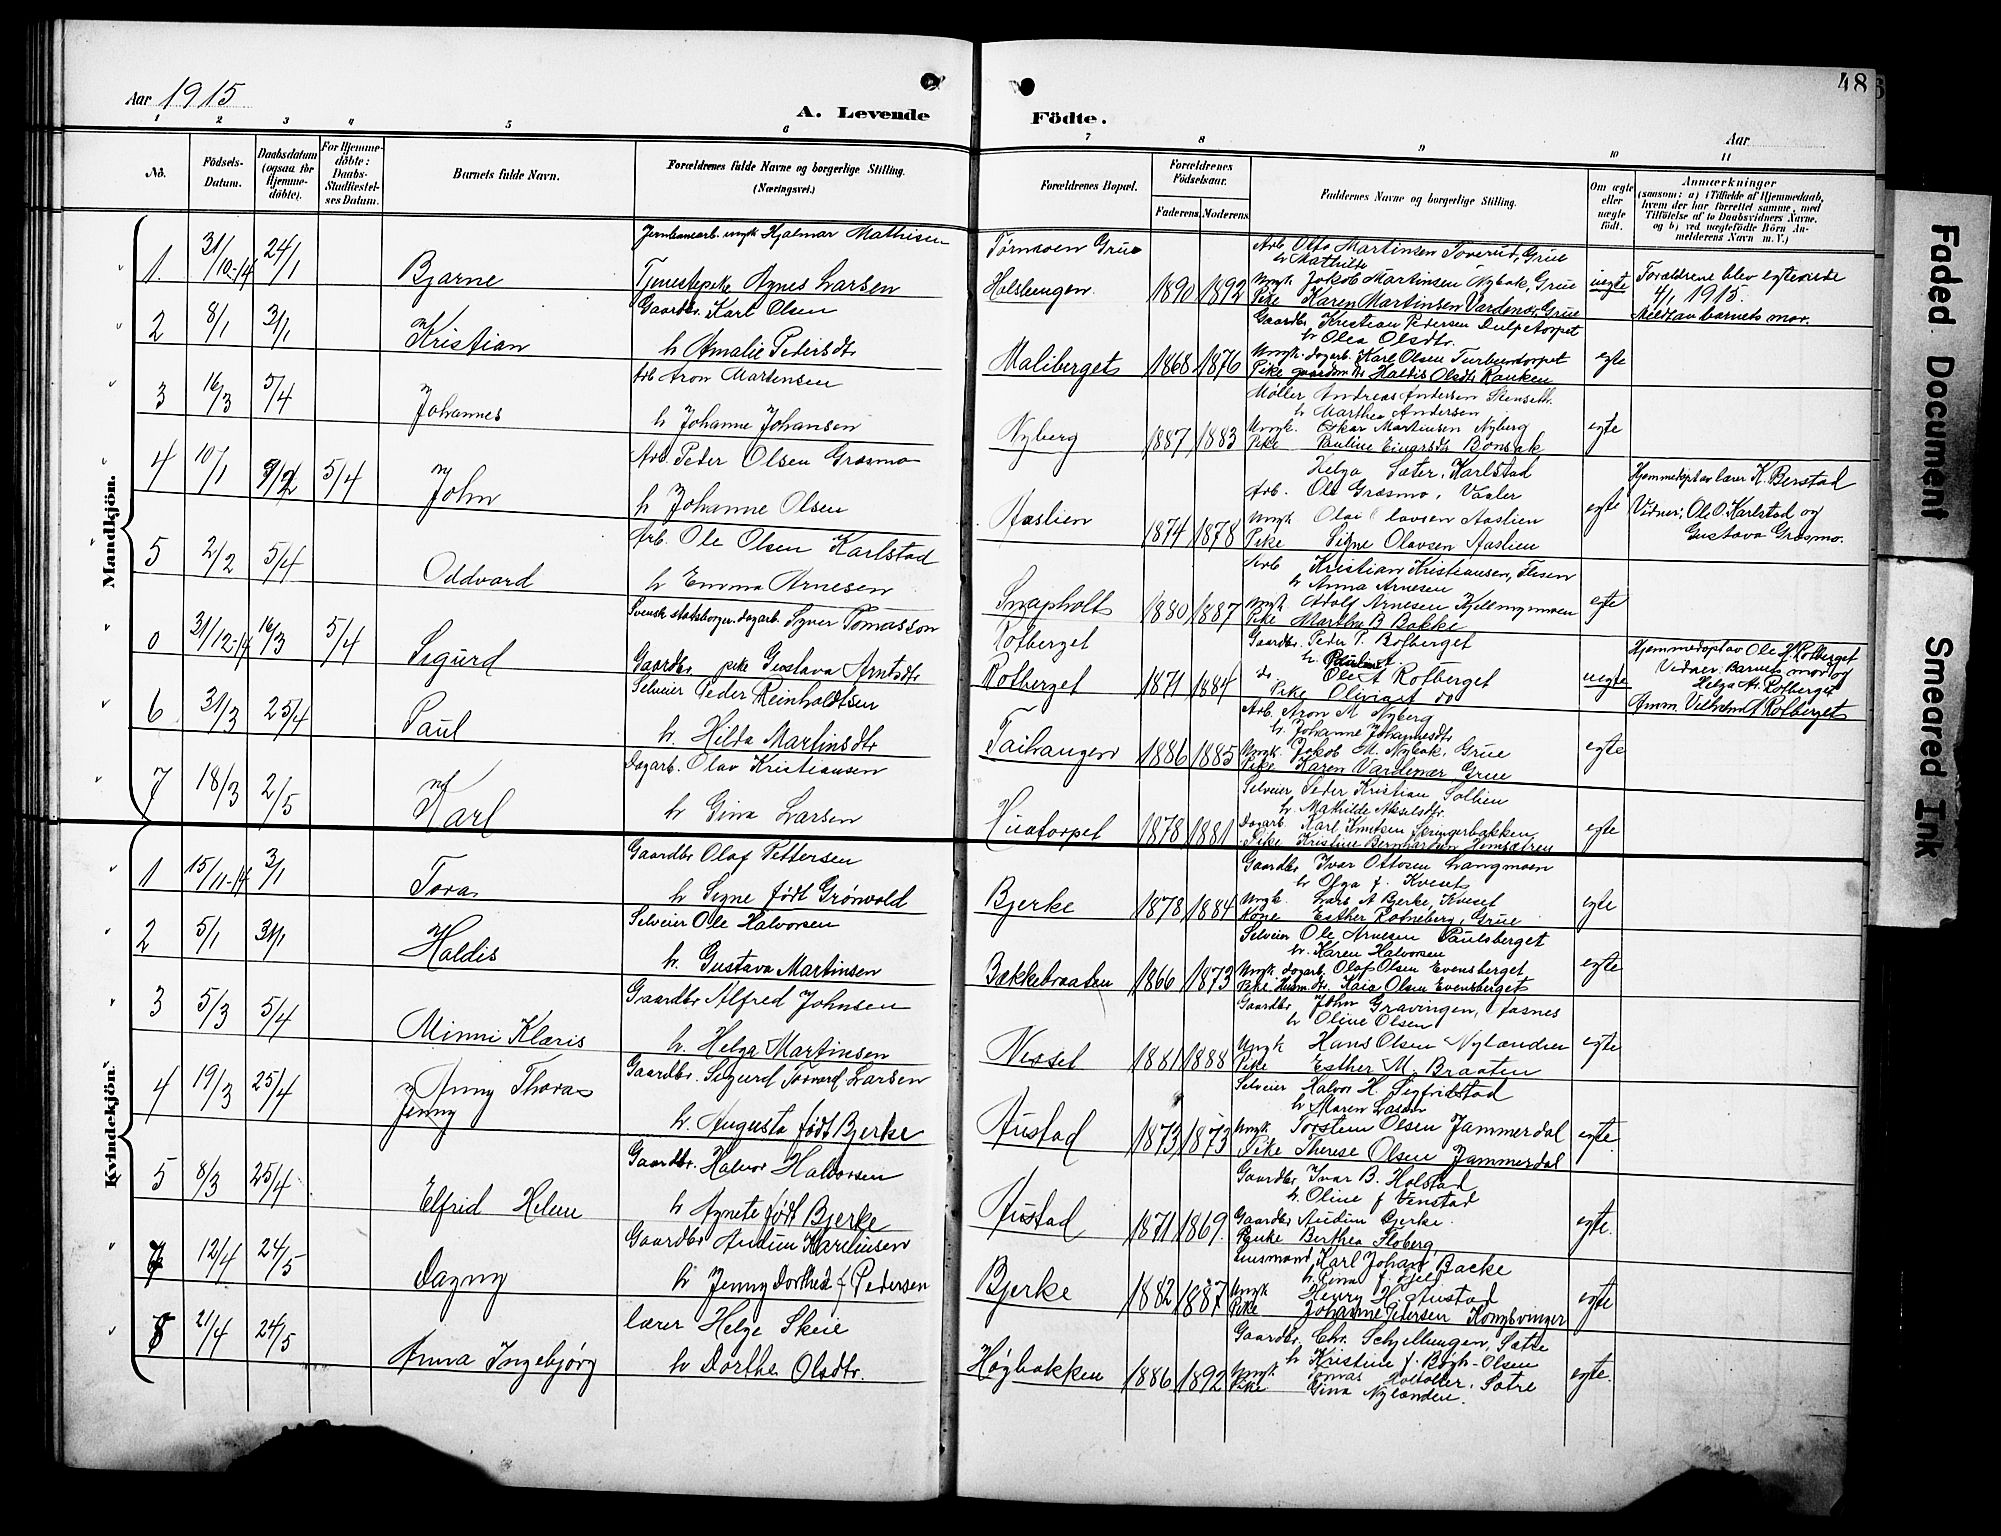 48
Aar 1915
A. Levende Födte.
Aar
1 2 3 4 5 6 7 8 9 10 11
No.
Födsels-Datum.
Daabsdatum (ogsaa for Hjemme-døbte).
For Hjemme-døbte: Daabs-Stadfæstel-ses Datum.
Barnets fulde Navn.
Forældrenes fulde Navne og borgerlige Stilling. (Næringsvei.)
Forældrenes Bopæl.
Forældrenes Födselsaar.
Faderens. Moderens.
Faddernes Navne og borgerlige Stilling.
Om ægte eller uægte födt.
Anmærkninger
(saasom: a) i Tilfælde af Hjemmedaab, hvem der har forrettet samme, med Tilföielse af to Daabsvidners Navne, og b) ved uægtefödte Börn An-melderens Navn m. V.)
Mandkjön.
Jernbanearb. ungk Hjalmar Mathisen
Tørmoen Grue
Arb. Otto Martinsen Toverud, Grue
h Mathilde
1. 31/10-14 24/1 Bjarne
Tjenestepike Agnes Larsen
Halsbengen 1890 1892
Ungk. Jakob Martinsen Nybak, Grue
Pike Karen Martinsen Vardenær, Grue
uegte
Forældrene blev egteviede
4/1 1915.
Meldt av barnets mor.
2 8/1 3/1 Kristian
Gaardbr. Karl Olsen
h Amalie Pedersdtr
Maliberget 1868 1876
Gaardbr. Kristian Pedersen Dulpetorpet
h Olea Olsdtr.
Ungk. dagarb. Karl Olsen Turbertorpet
Pike gaardm. dtr Haldis Olsdtr Rauken
egte
3 16/3 5/4 Johannes
Arb Aron Martinsen
h Johanne Johansen
Nyberg 1887 1883
Møller Andreas Andersen Stenseth.
h Marthea Andersen
Ungk. Oskar Martinsen Nyberg
Pike Pauline Einarsdtr Bonsak
egte
4 10/1 9/2 5/4 John
Arb. Peder Olsen Grasmo
h Johanne Olsen
Aaslien 1874 1878
Helga Sæter, Karlstad
Arb. Ole Græsmo, Vaaler
Ungk Olai Olavsen Aaslien
Pike Signe Olavsen Aaslien
egte
Hjemmedøpt av lærer K. Berstad
Vidner: Ole O. Karlstad og
Gustava Græsmo.
5 2/2 5/4 Oddvard
Arb. Ole Olsen Karlstad
h Emma Arnesen
Snapholt 1880 1887
Arb Kristian Kristiansen, Flisen
h Anna Arnesen
Ungk. Adolf Arnesen Kjellmyrmoen
Pike Marthe B Bakke
egte
0 31/12-14 16/3 5/4 Sigurd
Svensk statsborger. dagarb. Syver Tomasson
Gaardbr. pike Gustava Arntsdtr
Rotberget
Rotberget 1871 1884
Gaardbr. Peder P. Rotberget
h. Pauline
do Ole A Rotberget
Pike Oliviart do
uegte
Hjemmedøpt av Ole H. Rotberget
Vidner Barnets mor og
Helga A. Rotberget
Anm. Vilhelm A Rotberget
6 31/3 25/4 Paul
Selveier Peder Reinholdtsen
h. Hilda Martinsdtr
Taihaugen 1886 1885
Arb. Aron M Nyberg
h. Johanne Johannesdtr
Ungk. Jakob M. Nybak, Grue
Pike Karen Vardenær Grue
egte
7 18/3 2/5 Karl
Dagarb. Olav Kristiansen
h Gina Larsen
Huatorpet 1878 1881
Selveier Peder Kristian Sollien
h Mathilde Akselsdtr.
Dagarb. Karl Knutsen Springerbakken
Pike Kristine Bernhardsen Heimsætren
egte
Kvindekjön.
1 15/11-14 3/1 Tora
Gaardbr Olaf Pettersen
h Signe født Grønvold
Bjerke 1878 1884
Gaardbr Ivar Ottosen Langmoen
h Olga f. Kveset
Ungk. Lars A Bjerke, Kveset
Kone Esther Rotneberg, Grue
egte
2 5/1 31/1 Haldis
Selveier Ole Halvorsen
h. Gustava Martinsen
Bækkebraaten 1866 1873
Selveier Ole Arnesen Paulsberget
h. Karen Halvorsen
Ungk. dagarb. Olaf Olsen Evensberget
Pike Husm. dtr. Kaia Olsen Evensberget
egte
3 5/3 5/4 Minni Klæris
Gaardbr Alfred Johnsen
h. Helga Martinsen
Nesset 1881 1888
Gaardbr. John Gravingen, Aasnes
h Oline Olsen
Ungk Hans Olsen Nylænden
Pike Esther M. Braaten
egte
4 19/3 25/4 Jenny Anny Thora
Gaardbr. Sigurd Torvard Larsen
h. Augusta født Bjerke
Austad 1873 1873
Selveier Halvor H. Sigfridstad
h Maren Lasen
Ungk. Torstein Olsen Jammerdal
Pike Therese Olsen Jammerdal
egte.
5 8/3 25/4 Elfrid Helene
Gaardbr. Halvor Halvorsen
h Agnete født Bjerke
Austad 1871 1869.
Gaardbr Ivar B. Holstad
h. Oline f Venstad
Gaardbr Audun Bjerke.
Pike Berthea Floberg,
egte.
7 12/4 24/5 Dagny
Gaardbr Audun Karelinsen
h Jenny Dorthea f Pedersen
Bjerke 1882 1887
Lensmand, Karl Johan Backe
h. Rina f. Fjeld
Ungk Henry H. Austad
Pike Johanne Petersen Kongsvinger
egte
8 21/4 24/5 Anna Ingebjørg
lærer Helge Skeie
h Dorthe Olsdtr.
Høgbakken 1886 1892
Gaardbr. Chr. Schjellungen, Satre
h Kristine f. Bøgh-Olsen
Ungk. Tomas Holtolter, Satre
Pike Gina Nylænden.
egte.
Faded Document
Smeared Ink